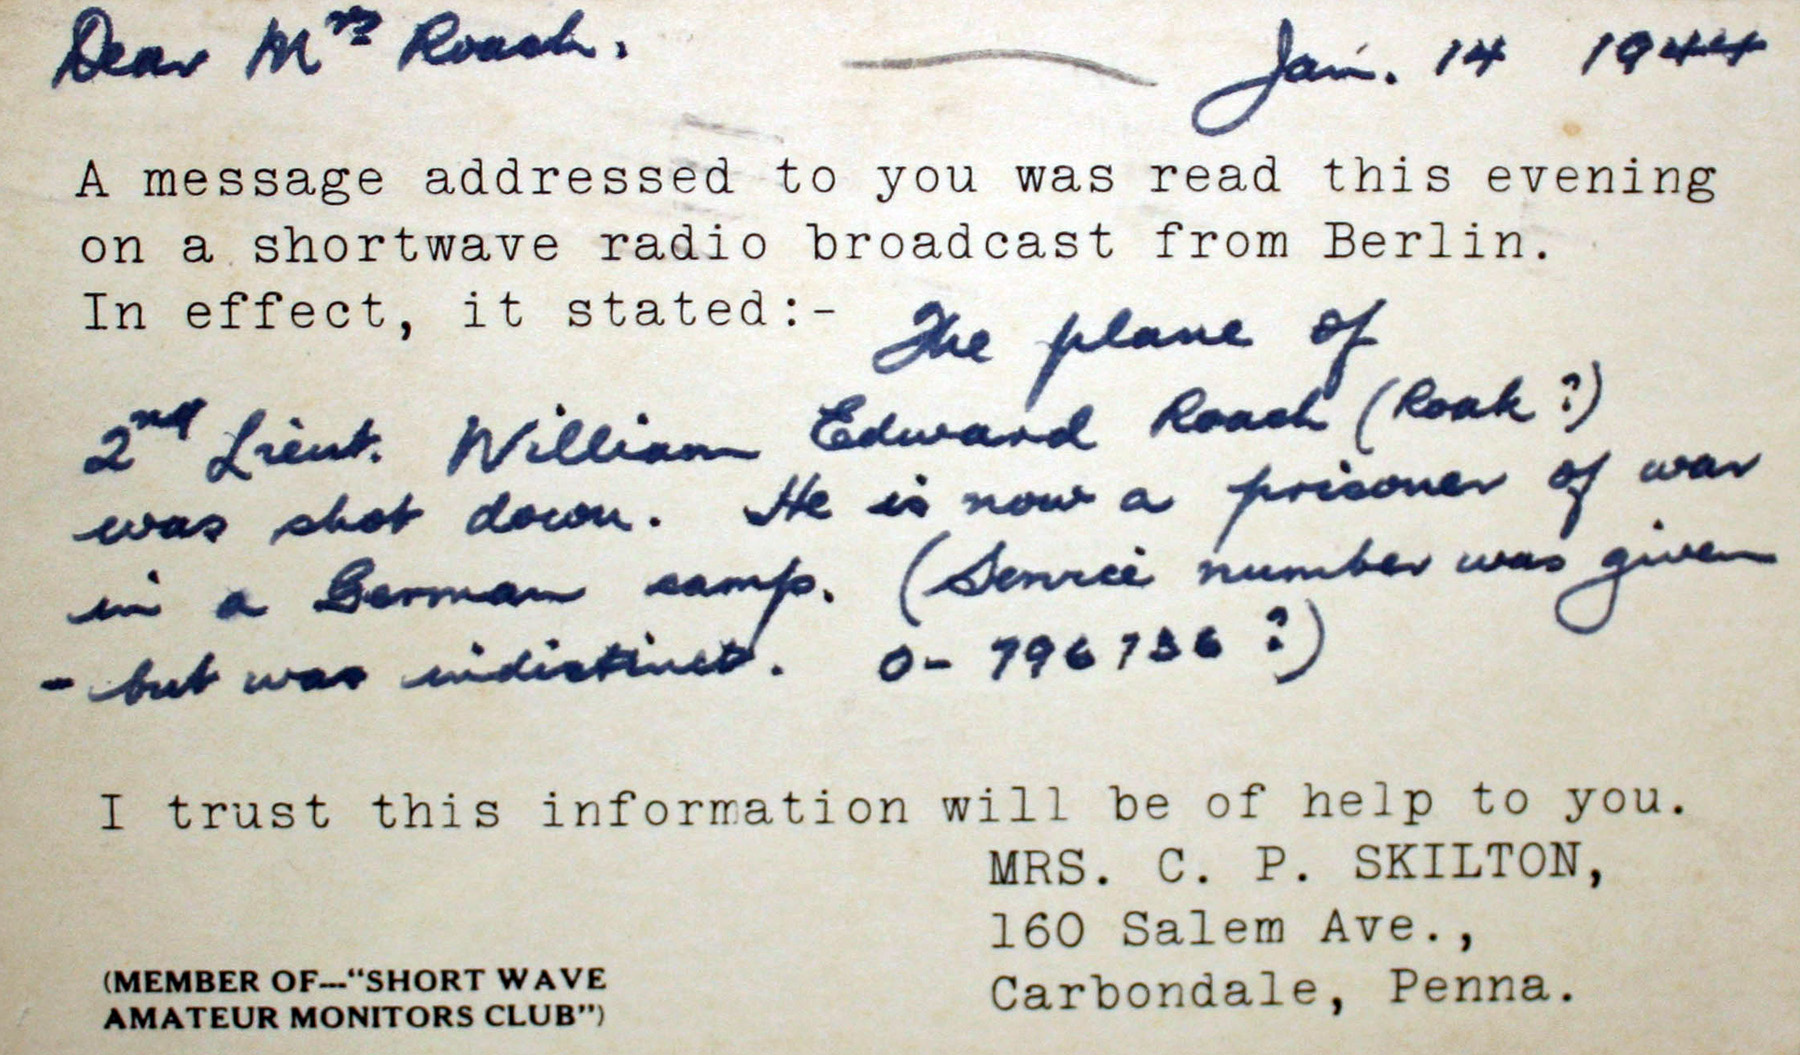 Dear Mrs Roach, Jan. 14 1944
A message addressed to you was read this evening
on a shortwave radio broadcast from Berlin.
In effect, it stated:- The plane of
2nd Lieut. William Edward Roach (Roak?)
was shot down. He is now a prisoner of war
in a German camp. (Service number was given
- but was indistinct. O- 796736?)
I trust this information will be of help to you.
MRS. C. P. SKILTON,
160 Salem Ave.,
Carbondale, Penna.
(MEMBER OF---"SHORT WAVE
AMATEUR MONITORS CLUB")